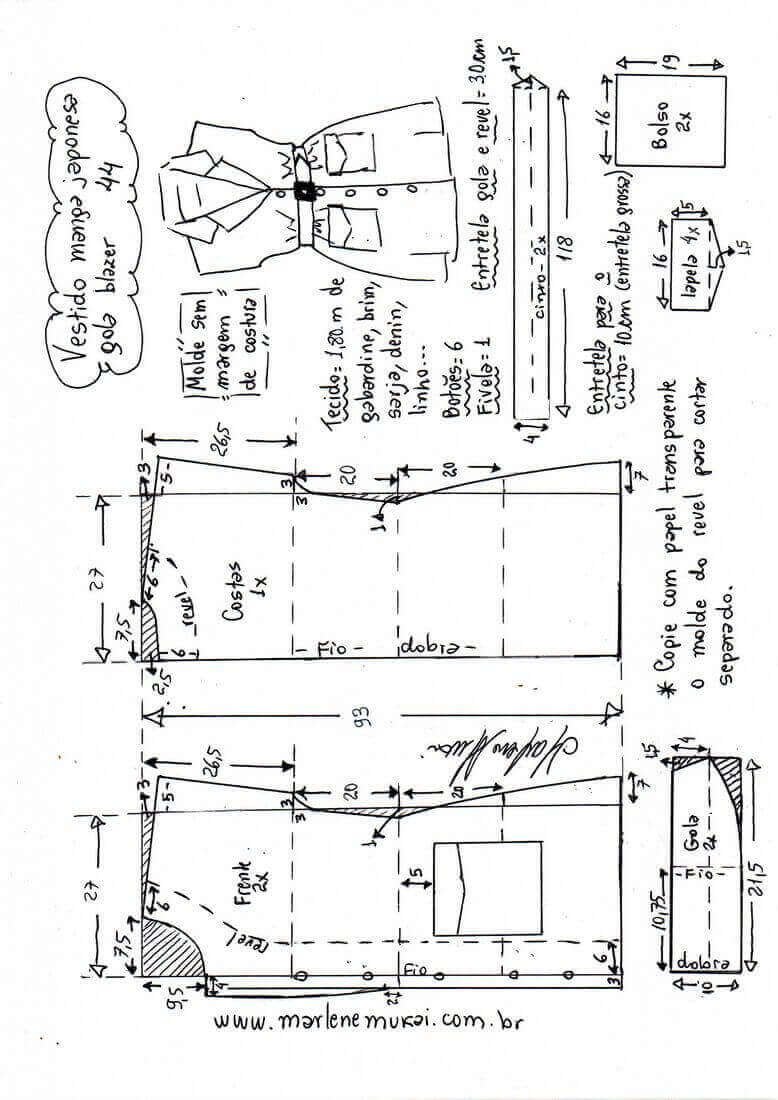 Vestido manga japonesa
gola blazer 44
Molde sem
margem
de costura
Tecido= 1,80 m de
gabardine, brim,
sarja, denin,
linho...
Botões= 6
Fivela= 1
Entretela gola e revel= 30cm
1,5
cinto - 2x
118
4
Entretela para o
cinto= 10cm (entretela grossa)
19
16
Bolso
2x
16
5
lapela 4x
1,5
* Copie com papel transparente
o molde do revel para cortar
separado.
27
3
5
26,5
7,5
6
revel
6
2,5
Costas
1x
3
3
20
20
1
7
- Fio -
dobra -
93
27
3
5
26,5
7,5
6
9,5
4
Frente
2x
revel
3
3
20
20
1
5
7
Fio
2
6
3
1,5
4
Gola
2x
- Fio -
10,75
21,5
dobra
10
www.marlenemukai.com.br